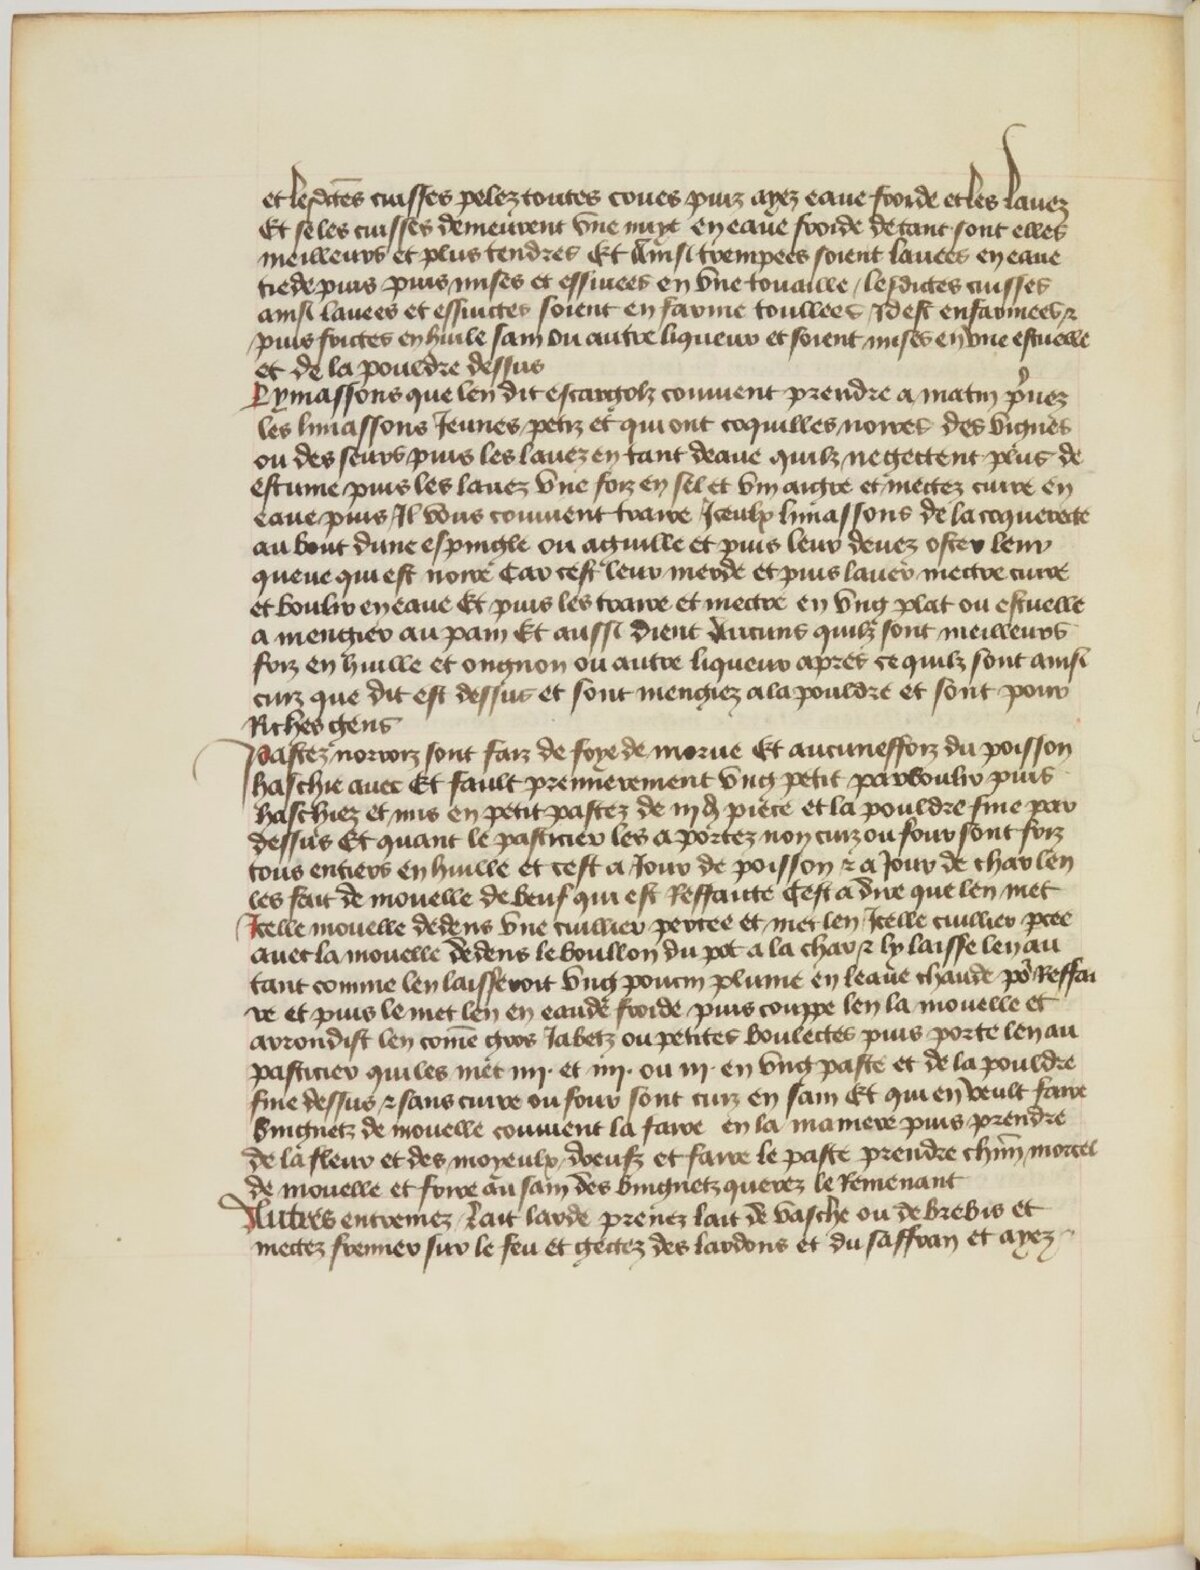 et lesdctẽs cuisses pelez toutes coues puiz ayez eaue froide et les lavez
Et se les cuisses demeurent vne nuyt en eaue froide de tant sont elles
meilleurs et plus tendres Et Ainsi trempees soient lauees en eaue
tiede puis puis mises et essuiees en vne touaille lesdictes cuisses
ainsi lauees et essuictes soient en farine toullees Idest enfarinees ⁊
puis frictes en huile sain ou autre liqueur et soient mises en vne escuelle
et de la pouldre dessus
Lymassons que len dit escargolz conuient prendre a matin p̃nez
les limassons Jeunes petiz et qui ont coquilles noires des vignes
ou des seurs puis les lauez en tant deaue quilz ne gectent plus de
escume puis les lauez vne foiz en sel et vin aigre et mectez cuire en
eaue puis Il vous conuient traire Iceulx limassons de la coquecte
au bout dune espingle ou aguille et puis leur deuez oster leur
queue qui est noire Car cest leur merde et puis lauer mectre cuire
et boulir en eaue Et puis les traire et mectre en vng plat ou escuelle
a mengier au pain Et aussi dient Aucuns quilz sont meilleurs
friz en huille et ongnon ou autre liqueur apres ce quilz sont ainsi
cuiz que dit est dessus et sont mengiez a la pouldre et sont pour
Riches gens
Pastez norroiz sont faiz de foye de morue Et aucuneffoiz du poisson
haschie auec Et fault premierement vng petit parboulir puis
haschiez et mis en petit pastez de iij d̃ piece et la pouldre fine par
dessus Et quant le pasticier les aportez non cuiz ou four sont friz
tous entiers en huille et cest a Jour de poisson ⁊ a Jour de char len
les fait de mouelle de beuf qui est Reffaicte Cest a dire que len met
Icelle mouelle dedens vne cuillier percee et met len Icelle cuillier p̱cee
auec la mouelle dedens le boullon du pot a la char ⁊ ly laisse len au
tant comme len laisseroit vng poucin plume en leaue chaude po᷑ Reffai
re et puis le met len en eaude froide puis couppe len la mouelle et
arrondist len com̃e gros Jabetz ou petites boulectes puis porte len au
pasticier qui les met iiij. et iiij. ou iij. en vng paste et de la pouldre
fine dessus ⁊ sans cuire ou four sont cuiz en sain Et qui en veult faire
bingnetz de mouelle conuient la faire en la maniere puis prendre
de la fleur et des moyeulx doeufz et faire le paste prendre chũn morcel
de mouelle et frire au sain des bingnetz querez le Remenant
Autres entremez Lait larde prenez lait de vasche ou de brebis et
mectez fremier sur le feu et gectez des lardons et du saffran et ayez